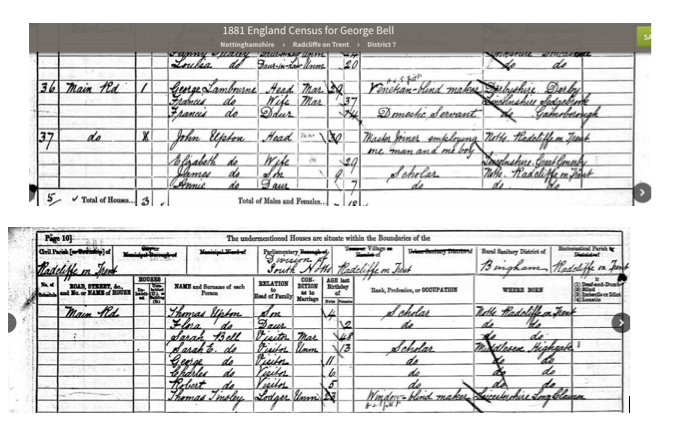 1881 England Census for George Bell
Nottinghamshire › Radcliffe on Trent › District 7
Louisa do Daur-in-law Unm 20 do do
36 Main Rd 1 George Lambourne Head Mar Venetian-blind maker Derbyshire Derby
Frances do Wife Mar 37 Lincolnshire
Francis do Daur 14 Domestic Servant do Gainsborough
37 do John Upton Head 30 Master Joiner employing Notts. Radcliffe on Trent
one man and one boy
Elizabeth do Wife 29 Lincolnshire
James do Son 9 Scholar Notts. Radcliffe on Trent
Annie do Daur 7 do do
5 Total of Houses... 3 Total of Males and Females...
Page 10] The undermentioned Houses are situate within the Boundaries of the
Civil Parish [or Township] of City or Municipal Borough of Municipal Ward of Parliamentary Borough of Town or Village of Urban Sanitary District of Rural Sanitary District of Ecclesiastical Parish or District of
Radcliffe on Trent Division of South Notts Radcliffe on Trent Bingham Radcliffe on Trent
No. of Schedule ROAD, STREET, &c., and No. or NAME of HOUSE HOUSES NAME and Surname of each Person RELATION to Head of Family CONDITION as to Marriage AGE last Birthday of Males Females Rank, Profession, or OCCUPATION WHERE BORN (1) Deaf-and-Dumb (2) Blind (3) Imbecile or Idiot (4) Lunatic
Main Rd Thomas Upton Son 4 Scholar Notts Radcliffe on Trent
Flora do Daur 2 do do do
Sarah Bell Visitor Mar 48 do do
Sarah E. do Visitor Unm 13 Scholar Middlesex Highgate
George do Visitor 11 do do do
Charles do Visitor 6 do do do
Robert do Visitor 5 do do do
Thomas Tinsley Lodger Unm 23 Window-blind maker Leicestershire Long Clawson